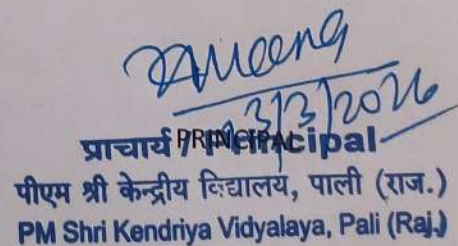 Meena
13/3/2026
प्राचार्य / Principal
PRINCIPAL
पीएम श्री केन्द्रीय विद्यालय, पाली (राज.)
PM Shri Kendriya Vidyalaya, Pali (Raj.)